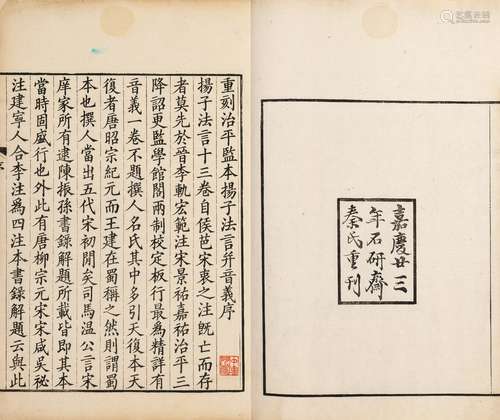 嘉慶廿三
年石研齋
秦氏重刊
重刻治平監本揚子法言并音義序
揚子法言十三卷自侯芭宋衷之注旣亡而存
者莫先於晉李軌宏範注宋景祐嘉祐治平三
降詔更監學館閣兩制校定板行最爲精詳有
音義一卷不題撰人名氏其中多引天復本天
復者唐昭宗紀元而王建在蜀稱之然則謂蜀
本也撰人當出五代宋初閒矣司馬溫公言宋
庠家所有逮陳振孫書錄解題所載皆卽其本
當時固盛行也外此有唐柳宗元宋宋咸吴祕
注建寧人合李注爲四注本書錄解題云與此
序